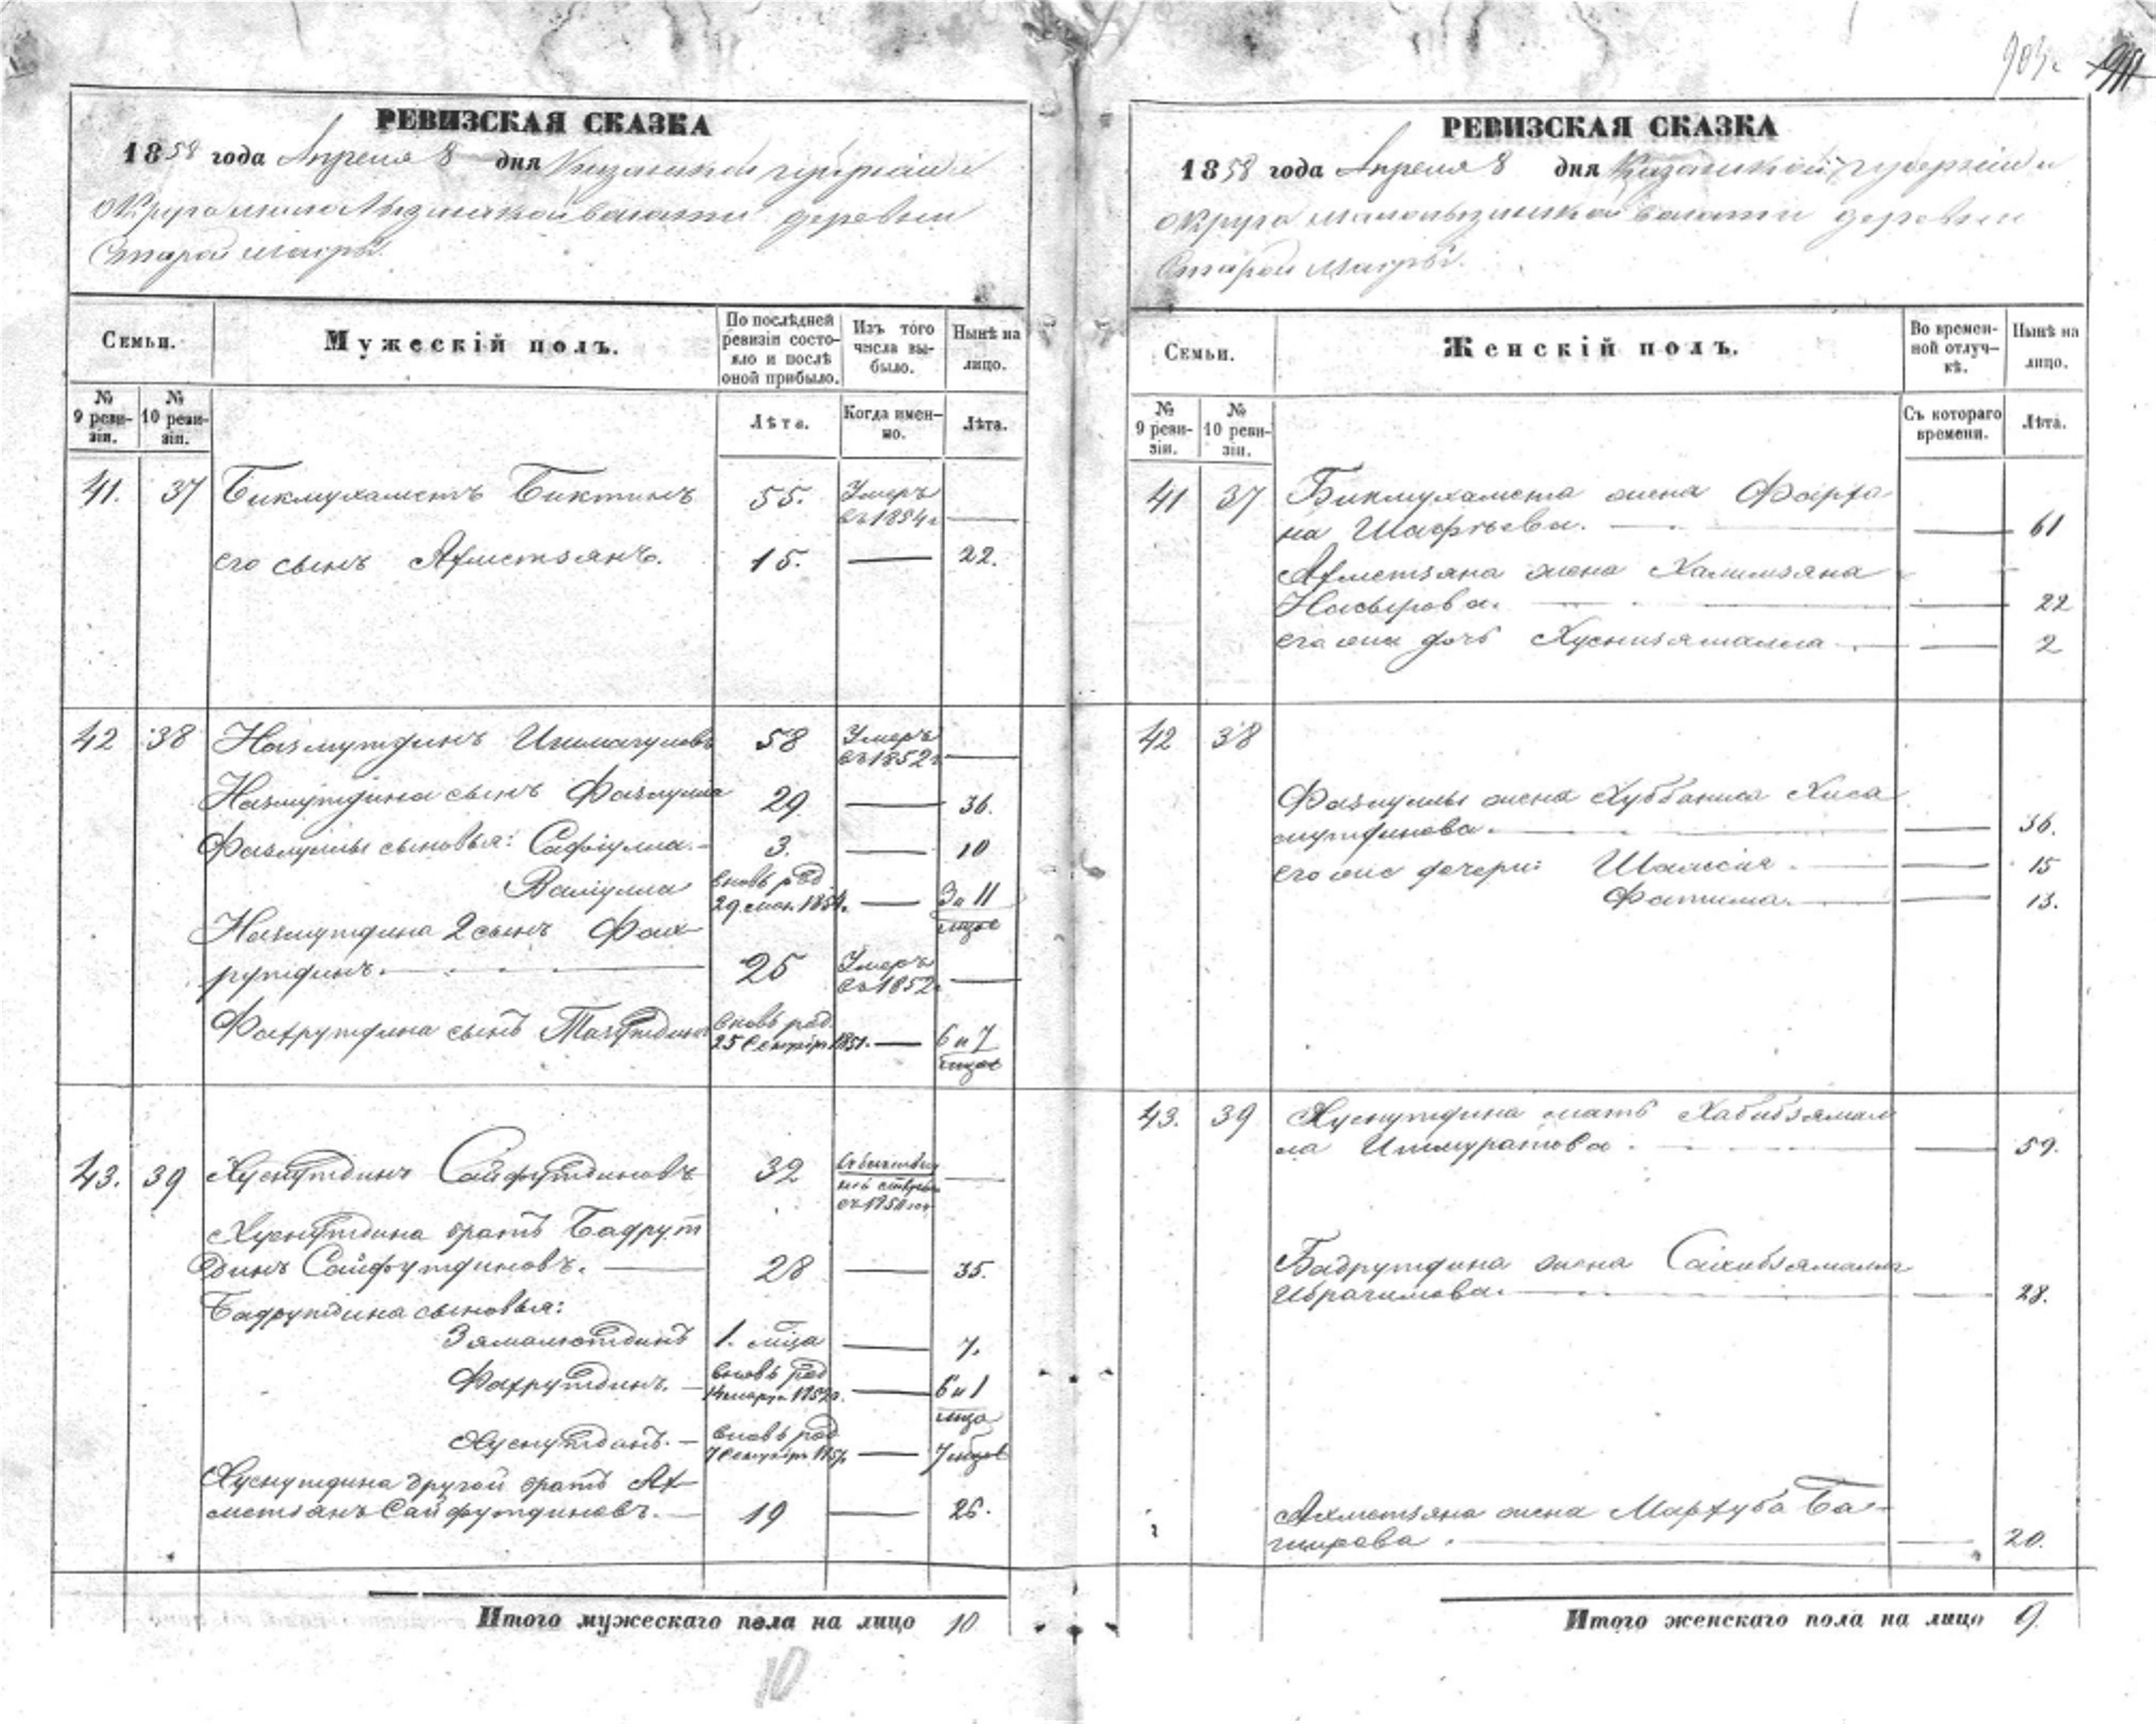 903
РЕВИЗСКАЯ СКАЗКА
1858 года Апреля 8 дня Казанской губернии и
округа Малолызинской волости деревни
Старой Масры.
Семьи.
Мужескій полъ.
По послѣдней ревизіи состояло и послѣ оной прибыло.
Изъ того числа выбыло.
Нынѣ на лицо.
№ 9 ревизіи.
№ 10 ревизіи.
Лѣта.
Когда именно.
Лѣта.
41. 37 Бикмухаметъ Биктинъ 55. Умеръ въ 1854 г —
его сынъ Ахметзянъ. 15. — 22.
42 38 Назмутдинъ Ишмагуловъ 58 Умеръ въ 1852 г —
Назмутдина сынъ Фазлулла 29 — 36.
Фазлуллы сыновья: Сафіулла. 3. — 10
Валіулла вновь род. 29 1854. — 3 и 11 мѣсяц
Назмутдина 2 сынъ Фах-
рутдинъ. — 25 Умеръ въ 1852 —
Фахрутдина сынъ Тазутдинъ вновь род. 25 Сентябр 1851. — 6 и 7 мѣсяц
43. 39 Хуснутдинъ Сайфутдиновъ 32 —
Хуснутдина братъ Бадрут
динъ Сайфутдиновъ. — 28 — 35.
Бадрутдина сыновья:
Зямалютдинъ 1. мѣсца — 7.
Фахрутдинъ. — вновь род 14 марта 1852. — 6 и 1 мѣсца
Хуснутдинъ. — вновь род 7 Сентябр 1857. — 7 мѣсцов
Хуснутдина другой братъ Ах-
метзянъ Сайфутдиновъ. — 19 — 26.
Итого мужескаго пола на лицо 10
10
РЕВИЗСКАЯ СКАЗКА
1858 года Апреля 8 дня Казанской губерніи и
округа Малолызинской волости деревни
Старой Масры.
Семьи.
Женскій полъ.
Во временной отлучкѣ.
Нынѣ на лицо.
№ 9 ревизіи.
№ 10 ревизіи.
Съ котораго времени.
Лѣта.
41 37 Бикмухамета жена Фарха
на Шафѣева. — 61
Ахметзяна жена Халимзяна
Насырова. — 22
его она дочь Хуснизямалла — 2
42 38
Фазлуллы жена Хуббаниса Хиса
мутдинова. — 36.
его она дочери: — 15
Фатима. — 13.
43. 39 Хуснутдина мать Хабибзямал
ла Ишмуратова. — 59.
Бадрутдина жена Сахибзямалла
Ибрагимова. — 28.
Ахметзяна жена Мархуба Ба-
гирова. — 20.
Итого женскаго пола на лицо 9.